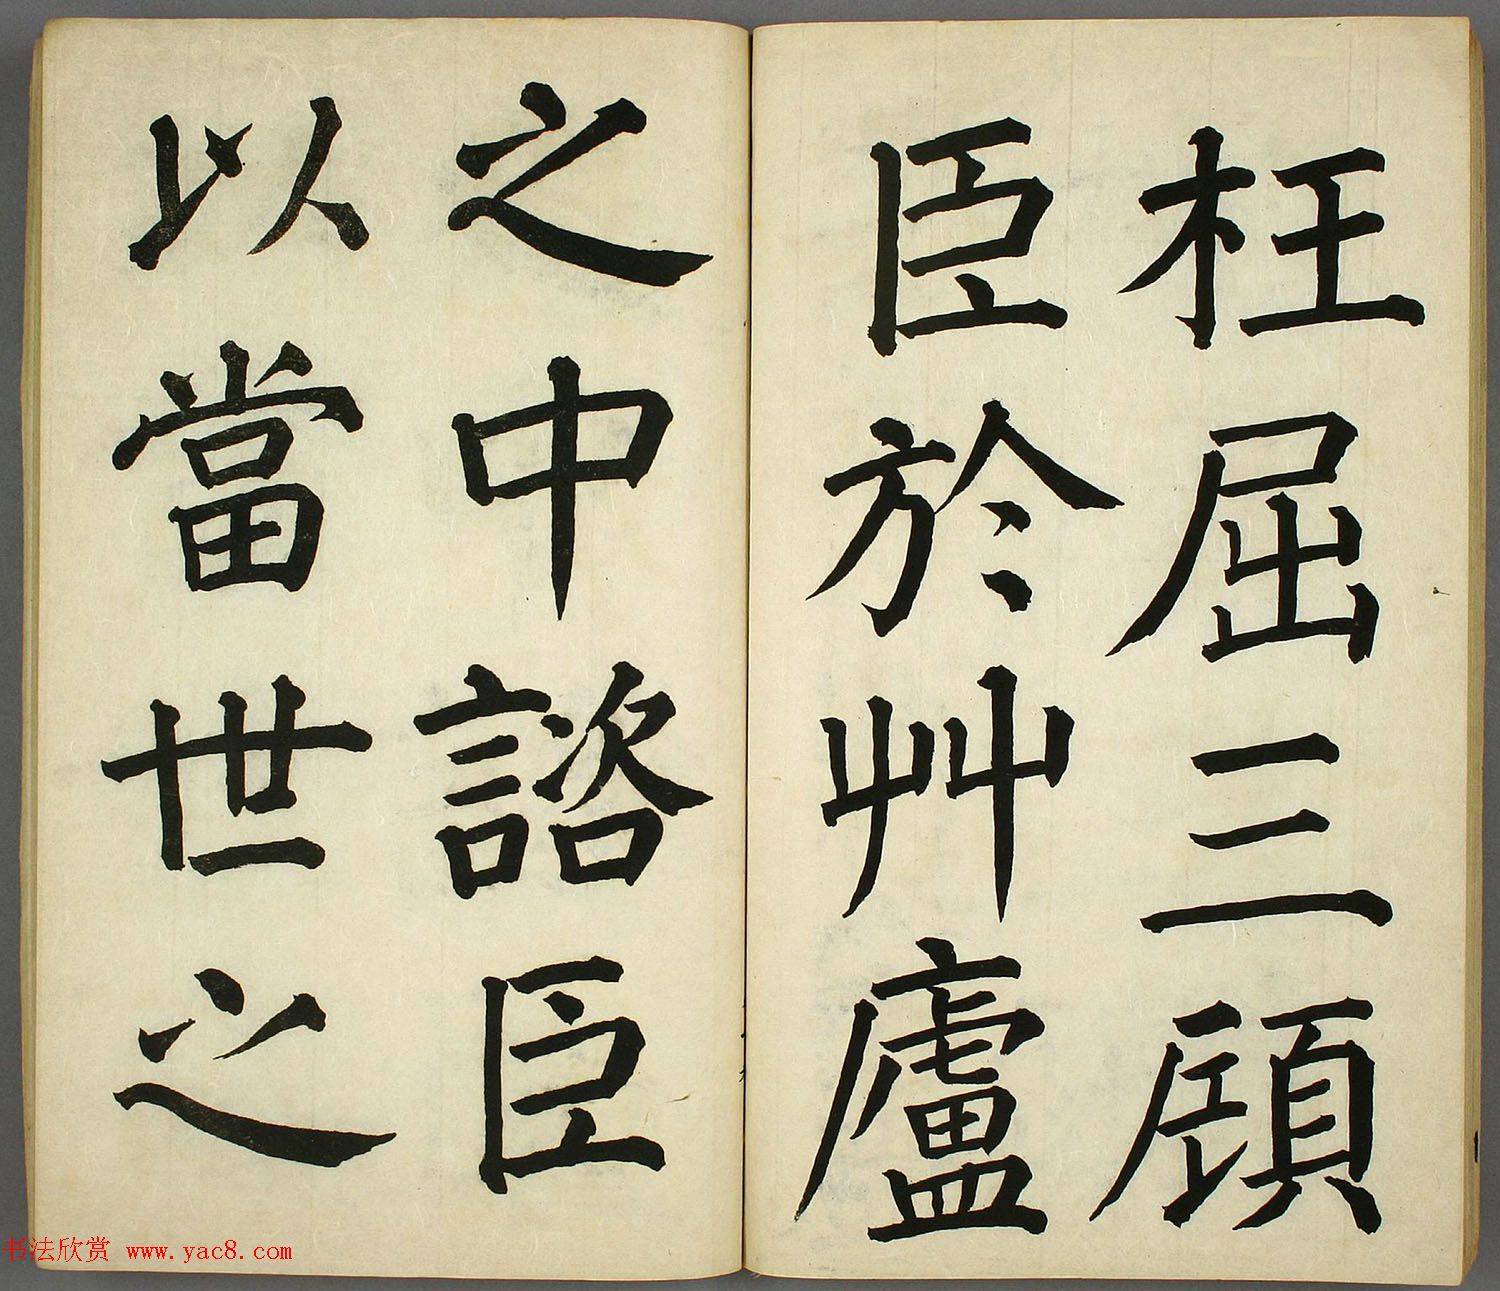 枉屈三顧
臣於艸廬
之中諮臣
以當世之
书法欣赏 www.yac8.com